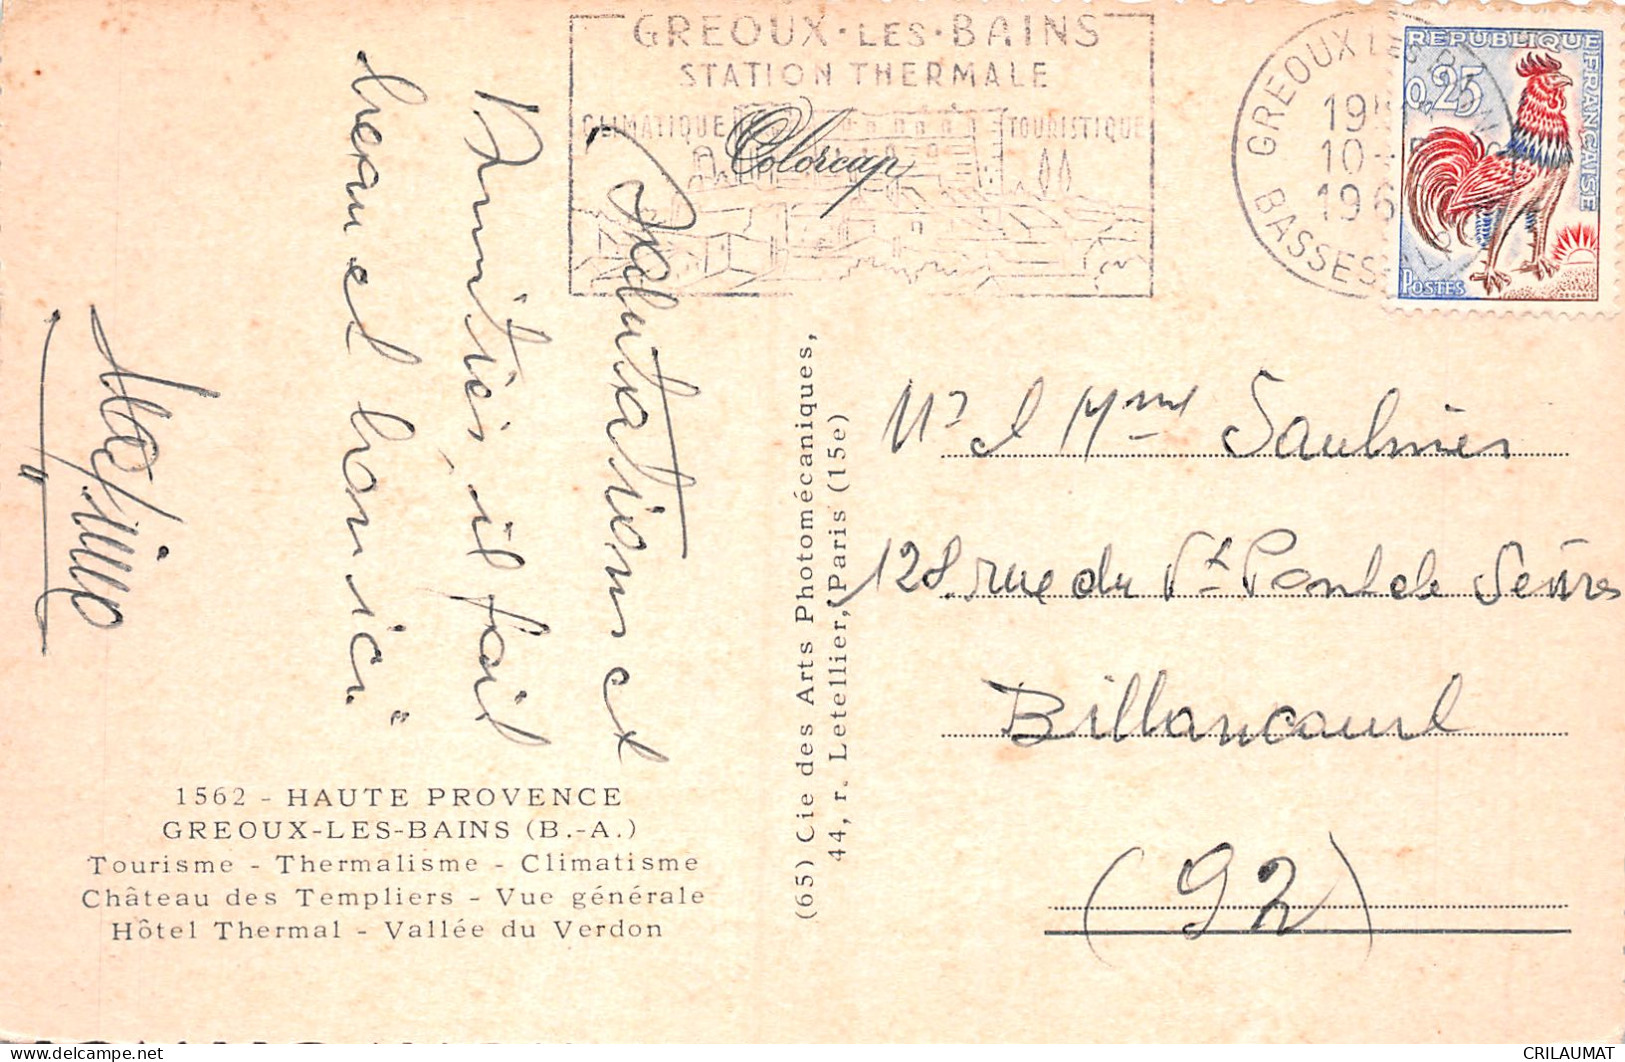 GREOUX·LES·BAINS
STATION THERMALE
CLIMATIQUE
TOURISTIQUE
Colorcap
GREOUX LES
10
196
BASSES
REPUBLIQUE
FRANÇAISE
0,25
POSTES
DECARIS
Salutations et
Amitiés, il fait
beau et bon ici
M. et Mme Saulnier
128. rue du Vt Pont de Sèvres
Billancourt
(92)
(65) Cie des Arts Photomécaniques,
44, r. Letellier, Paris (15e)
1562 - HAUTE PROVENCE
GREOUX-LES-BAINS (B.-A.)
Tourisme - Thermalisme - Climatisme
Château des Templiers - Vue générale
Hôtel Thermal - Vallée du Verdon
CRILAUMAT